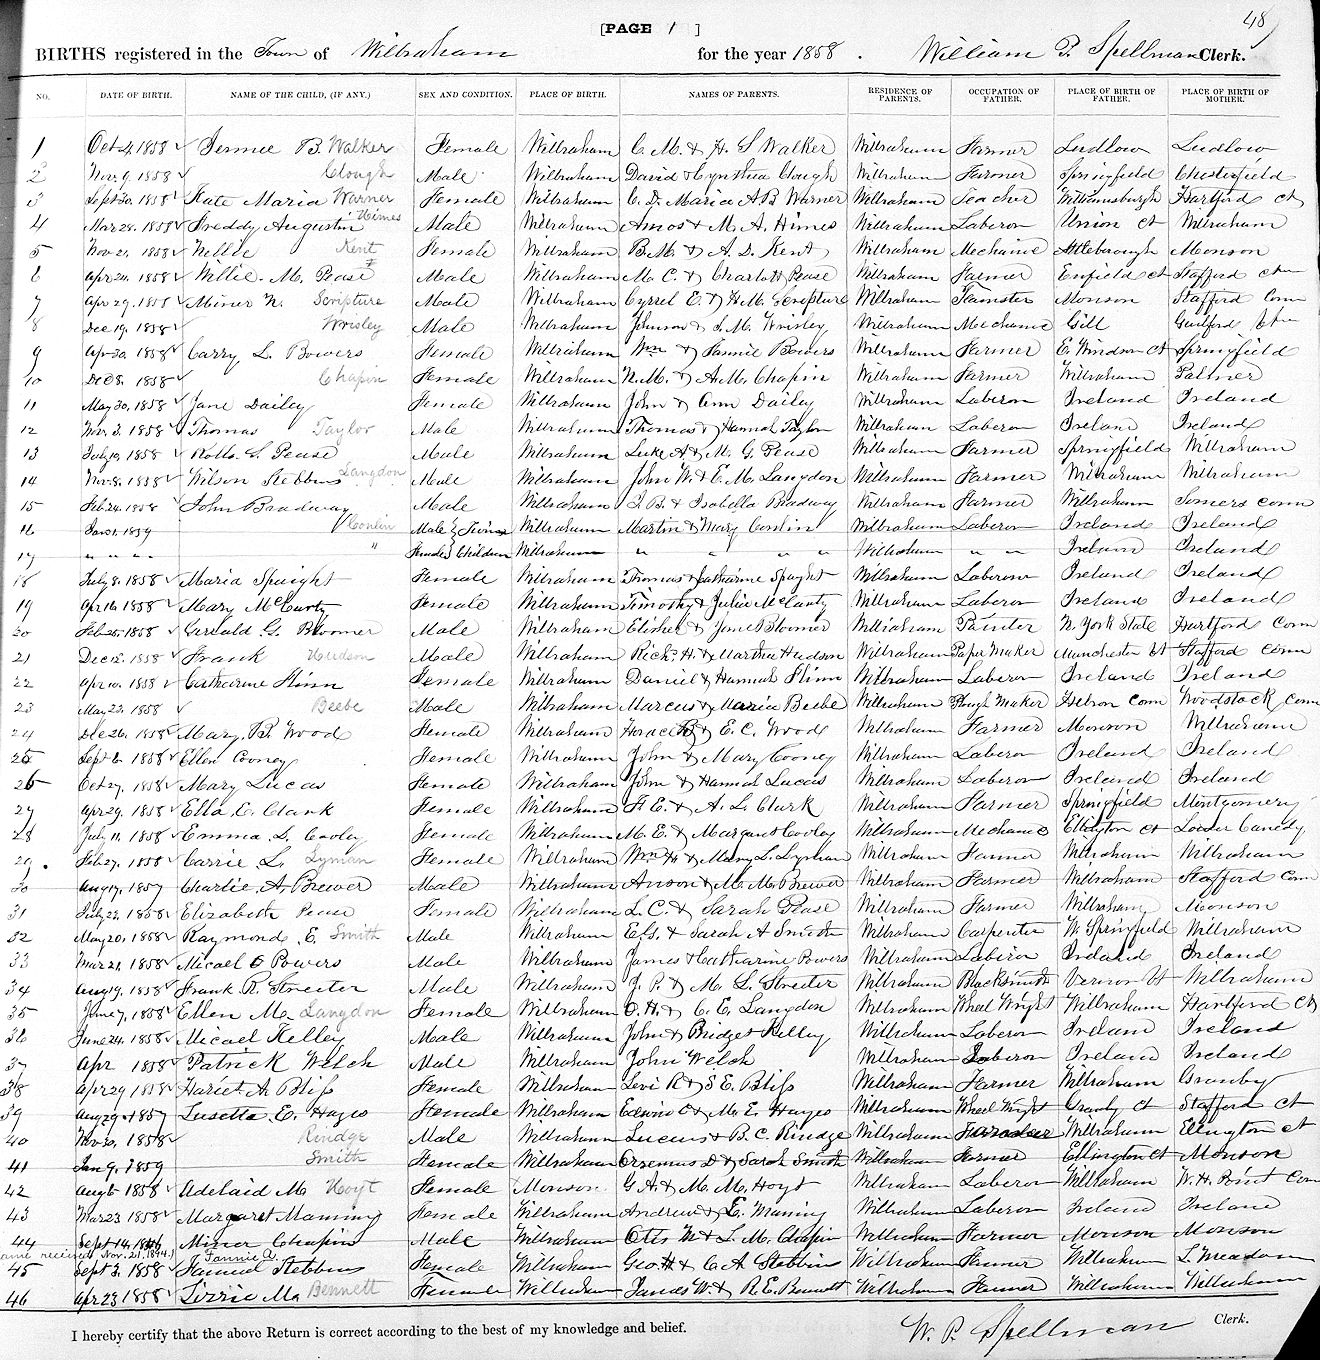 48
[PAGE 1 ]
BIRTHS registered in the Town of Wilbraham for the year 1858. William P. Spellman Clerk.
NO. DATE OF BIRTH. NAME OF THE CHILD, (IF ANY.) SEX AND CONDITION. PLACE OF BIRTH. NAMES OF PARENTS. RESIDENCE OF PARENTS. OCCUPATION OF FATHER. PLACE OF BIRTH OF FATHER. PLACE OF BIRTH OF MOTHER.
1 Oct 4, 1858 Jennie B. Walker Female Wilbraham C. M. & H. S Walker Wilbraham Farmer Ludlow Ludlow
2 Nov. 9, 1858 Clough Male Wilbraham David & Cynthia Clough Wilbraham Farmer Springfield Chesterfield
3 Sept 30, 1858 Kate Maria Warner Female Wilbraham C. D. Maria A B Warner Wilbraham Teacher Williamsburgh Hartford Ct
4 Mar 28, 1858 Freddy Augustin Himes Male Wilbraham Amos & M. A. Himes Wilbraham Laberor Union Ct Wilbraham
5 Nov 21, 1858 Nellie Kent Female Wilbraham B. M. & A. D. Kent Wilbraham Mechanic Attleborough Monson
6 Apr 24, 1858 Willie. M. Pease Male Wilbraham M. C. & Charlott Pease Wilbraham Farmer Enfield Ct Stafford
7 Apr 29, 1858 Miner N. Scripture Male Wilbraham Cyrrel E. & H. M. Scripture Wilbraham Teamster Monson Stafford Conn
8 Dec 19, 1858 Wrisley Male Wilbraham Johnson & S. M. Wrisley Wilbraham Mechanic Gill Guilford
9 Apr 20, 1858 Carry L. Bowers Female Wilbraham Wm & Fannie Bowers Wilbraham Farmer E. Windsor Ct Springfield
10 Dec 8, 1858 Chapin Female Wilbraham N. M. & A. M. Chapin Wilbraham Farmer Wilbraham Palmer
11 May 30, 1858 Jane Dailey Female Wilbraham John & Ann Dailey Wilbraham Laberor Ireland Ireland
12 Nov. 3, 1858 Thomas Taylor Male Wilbraham Thomas & Hannah Taylor Wilbraham Laberor Ireland Ireland
13 July 10, 1858 Rollo S. Pease Male Wilbraham Luke A & M. G. Pease Wilbraham Farmer Springfield Wilbraham
14 Nov. 8, 1858 Wilson Stebbins Langdon Male Wilbraham John W. & E. M. Langdon Wilbraham Farmer Wilbraham Wilbraham
15 Feb. 24, 1858 John Bradway Male Wilbraham J. B. & Isabella Bradway Wilbraham Farmer Wilbraham Somers Conn
16 Jan 1, 1859 Conlin Male } Twins Wilbraham Martin & Mary Conlin Wilbraham Laberor Ireland Ireland
17 " " " " " Female } Children Wilbraham " " " " Wilbraham " " Ireland Ireland
18 July 8, 1858 Maria Spaight Female Wilbraham Thomas & Catharine Spaght Wilbraham Laberor Ireland Ireland
19 Apr 16, 1858 Mary McCarty Female Wilbraham Timothy & Julia McCarty Wilbraham Laberor Ireland Ireland
20 Feb 25, 1858 G. Bloomer Male Wilbraham Elisher & Jane Bloomer Wilbraham Painter N. York State Hartford Conn
21 Dec 12, 1858 Frank Hudson Male Wilbraham Richd. H. & Martha Hudson Wilbraham Paper Maker Manchester Ct Stafford Conn
22 Apr 10, 1858 Catharine Flinn Female Wilbraham Daniel & Hannah Flinn Wilbraham Laberor Ireland Ireland
23 May 22, 1858 Beebe Male Wilbraham Marcus & Maria Beebe Wilbraham Plough Maker Hebron Conn Woodstock Conn
24 Dec 26, 1858 Mary. B. Wood Female Wilbraham Horace B & E. C. Wood Wilbraham Farmer Monson Wilbraham
25 Sept 6, 1858 Ellen Cooney Female Wilbraham John & Mary Cooney Wilbraham Laberor Ireland Ireland
26 Oct 27, 1858 Mary Lucas Female Wilbraham John & Hannah Lucas Wilbraham Laberor Ireland Ireland
27 Apr 29, 1858 Ella E. Clark Female Wilbraham F. E. & A. L. Clark Wilbraham Farmer Springfield Montgomery
28 July 11, 1858 Emma L. Cooley Female Wilbraham M. E. & Margaret Cooley Wilbraham Mechanic Ellington Ct Lower Canedy
29 Feb 27, 1858 Carrie L. Lyman Female Wilbraham Wm H. & Mary L. Lyman Wilbraham Farmer Wilbraham Wilbraham
30 Aug 17, 1857 Charlie A. Brewer Male Wilbraham Anson & M. M. Brewer Wilbraham Farmer Wilbraham Stafford Conn
31 July 22, 1858 Elizabeth Pease Female Wilbraham L. C. & Sarah Pease Wilbraham Farmer Wilbraham Monson
32 May 20, 1858 Raymond. E. Smith Male Wilbraham & Sarah A Smith Wilbraham Carpenter W. Springfield Wilbraham
33 Mar 21, 1858 Micael Powers Male Wilbraham James & Catharine Powers Wilbraham Laberor Ireland Ireland
34 Aug 19, 1858 Frank R. Streeter Male Wilbraham J. P. & M. L. Streeter Wilbraham Blacksmith Vernon Vt Wilbraham
35 June 7, 1858 Ellen M. Langdon Female Wilbraham O. H. & C. E. Langdon Wilbraham Wheel Wright Wilbraham Hartford Ct
36 June 24, 1858 Micael Kelley Male Wilbraham John & Bridget Kelley Wilbraham Laberor Ireland Ireland
37 Apr 1858 Patrick Welch Male Wilbraham John Welch Wilbraham Laberor Ireland Ireland
38 Apr 29 1858 Hariet A. Bliss Female Wilbraham Levi R & S E. Bliss Wilbraham Farmer Wilbraham Granby
39 Aug 29, 1857 Lusetta. E. Hayes Female Wilbraham Edwin C & M. E. Hayes Wilbraham Wheel Wright Granby Ct Stafford Ct
40 Nov 20, 1858 Rindge Male Wilbraham Lucius & B. C. Rindge Wilbraham Wilbraham Ellington Ct
41 Jan 9, 1859 Smith Female Wilbraham Orsemus D & Sarah Smith Wilbraham Farmer Ellington Ct Monson
42 Aug 6 1858 Adelaid M Hoyt Female Monson G. A. & M. M. Hoyt Wilbraham Laberor Wilbraham W. H. Point Conn
43 Mar 23 1858 Margaret Manning Female Wilbraham Andrew & E. Maning Wilbraham Laberor Ireland Ireland
44 Sept 14, Miner Chapin Male Wilbraham Otis M & L. M. Chapin Wilbraham Farmer Monson Monson
name received Nov. 21, 1894.) Fannie A.
45 Sept 3, 1858 Samuel Stebbins Female Wilbraham Geo H & C. A Stebbins Wilbraham Farmer Wilbraham L. Meadow
46 Apr 23 1858 Lizzie M. Bennett Female Wilbraham James W. & R. E. Bennett Wilbraham Farmer Wilbraham Wilbraham
I hereby certify that the above Return is correct according to the best of my knowledge and belief. W. P. Spellman Clerk.